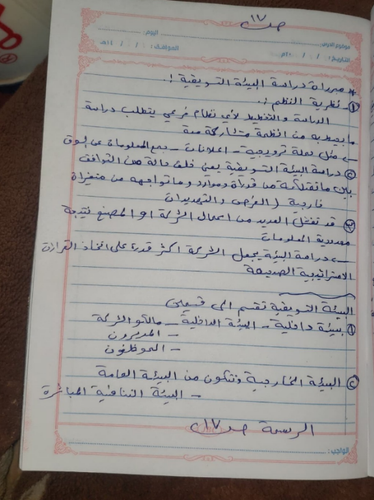 ص ١٧
موضوع الدرس:
اليوم:
التاريخ: / / ٢٠م
الموافق: / / ١٤هـ
* مبررات دراسة البيئة التسويقية :
① نظرية النظم :-
الدراسة والتخطيط لأي نظام فرعي يتطلب دراسة
ما يحيط به من أنظمة متشاركة معه
مثل حملة ترويجية - اعلانات - جمع المعلومات عن السوق
② دراسة البيئة التسويقية يعني خلق حالة من التوافق
بين ما تمتلكه من قدرات وموارد وما تواجهه من متغيرات
خارجية (الفرص والتهديدات
٣ قد تفشل العديد من اعمال الشركة او المصنع نتيجة
محدودية المعلومات
دراسة البيئة يجعل الشركة اكثر قدرة على اتخاذ القرارات
الاستراتيجية الصحيحة
البيئة التسويقية تقسم الى قسمين
① بيئة داخلية - البيئة الداخلية - مالكو الشركة
- المديرون
- الموظفون
② البيئة الخارجية وتتكون من البيئة العامة
- البيئة التنافسية المباشرة
الرسمة ص ١٧
الواجب: